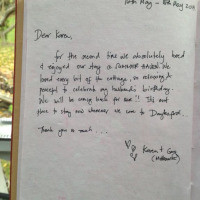 10th May - 12th May 2019
Dear Karen,
for the second time we absolutely loved
& enjoyed our stay a
loved every bit of the cottage, so relaxing &
peaceful to celebrate my husband's birthday.
We will be coming back for sure!! It's our
place to stay now whenever we come to
Thank you so much....
Karen + Guy
(Melbourne)